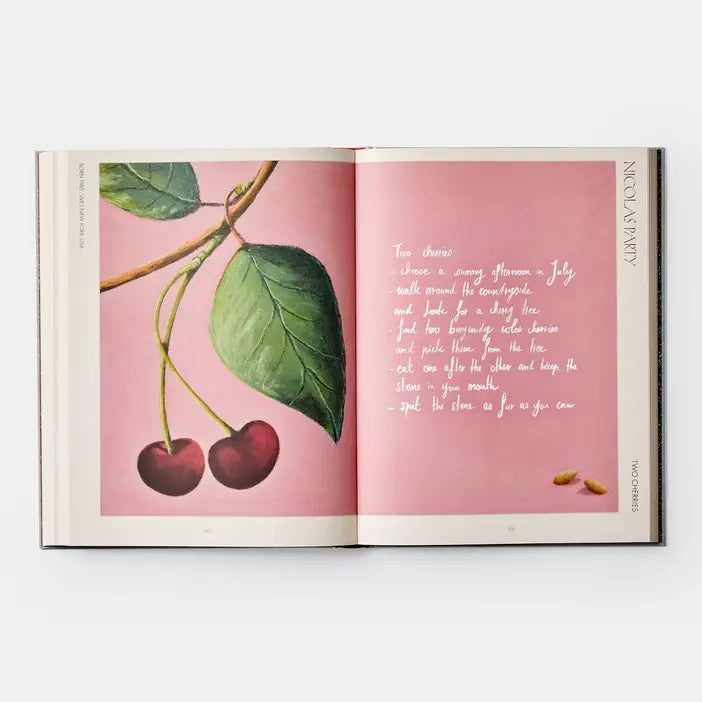 BORN 1980 · LIVES NEW YORK, USA
NICOLAS PARTY
Two cherries:
- choose a sunny afternoon in July
- walk around the countryside
and look for a cherry tree
- find two burgundy color cherries
and pick them from the tree
- eat one after the other and keep the
stone in your mouth
- spit the stone as far as you can
TWO CHERRIES